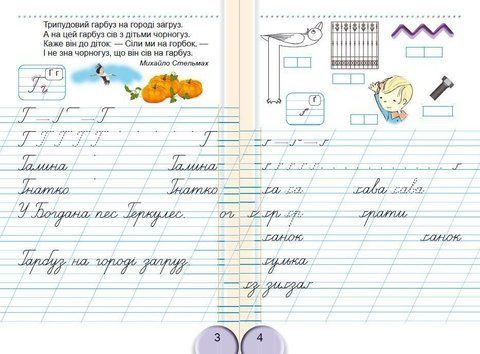 Трипудовий гарбуз на городі загруз.
А на цей гарбуз сів з дітьми чорногуз.
Каже він до діток: — Сіли ми на горбок, —
І не зна чорногуз, що він сів на гарбуз.
Михайло Стельмах
Г г
Г г
Г — Г — Г
Г Г Г Г Г Г
Галина Галина
Гнатко Гнатко
У Богдана пес Геркулес. ог
Гарбуз на городі загруз.
3
ґ
ґ — ґ — ґ
ґ ґ ґ ґ ґ ґ ґ
ґа ґа ґава ґава
ґр ґр ґрати
ґанок ґанок
ґулька
зиґзаґ
4